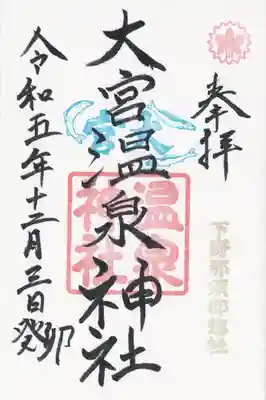 奉拝
下野那須郡総社
大宮温泉神社
温泉神社
令和五年十二月三日癸卯